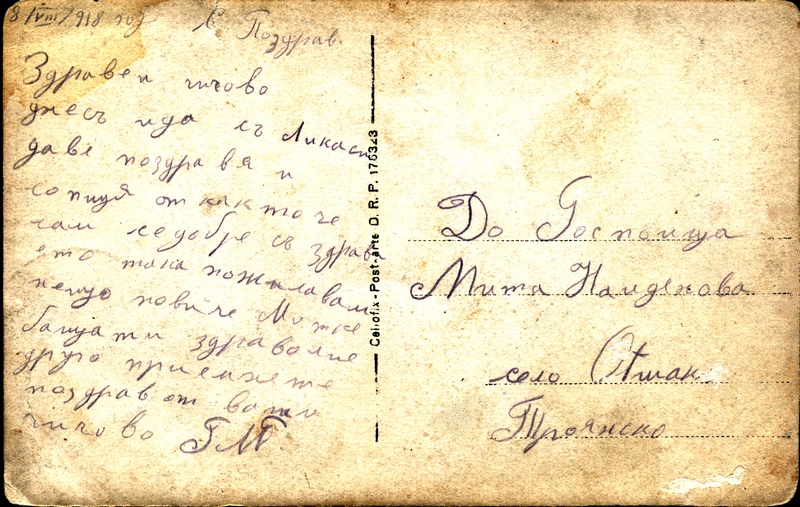 8/VIII/918 год
С Поздрав.
Здравеи чичово
днесъ ида съ
даве поздравя и
от как точе
съм седобре съ здраве
ето така пожилавам
нещо повиче Митке
бащати здраволие
друго приемнете
поздрав от ваши
чичово ГМГ.
Cellofix-Post-arte D. R. P. 176323
До Госпоица
Мита Наиденова
село Ошак
Троянско